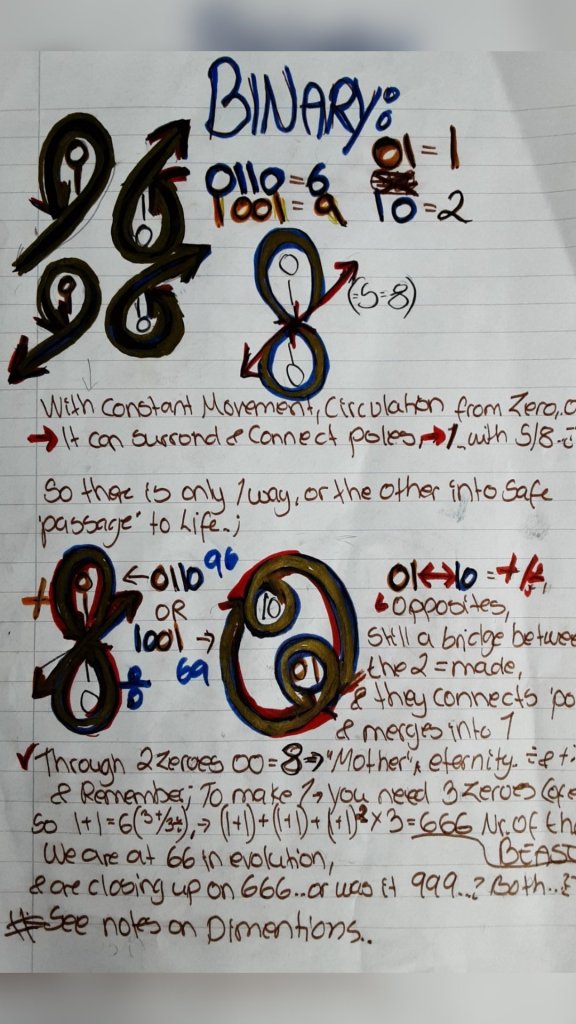 BINARY:
01 = 1
0110 = 6
1001 = 9
10 = 2
0
1
0
(=S=8)
With Constant Movement, Circulation from Zero,..
→ It can Surrond & Connect poles, → 1, with S/8
So there is only 1 way, or the other into Safe
'passage' to Life..;
+ ← 0110 96
OR
1001 → 69
10
01
01 ↔ 10 =
↳ Opposites,
Still a bridge betwee
the 2 = made,
& they connects 'po
& merges into 1
✓ Through 2 Zeroes 00 = 8 → "Mother", eternity.
& Remember; To make 1 → you need 3 Zeroes
So 1+1 = 6 → (1+1)+(1+1)+(1+1) x 3 = 666 Nr. Of th
BEAST
We are at 66 in evolution,
& are closing up on 666.. or was it 999..? Both..
See notes on Dimentions..